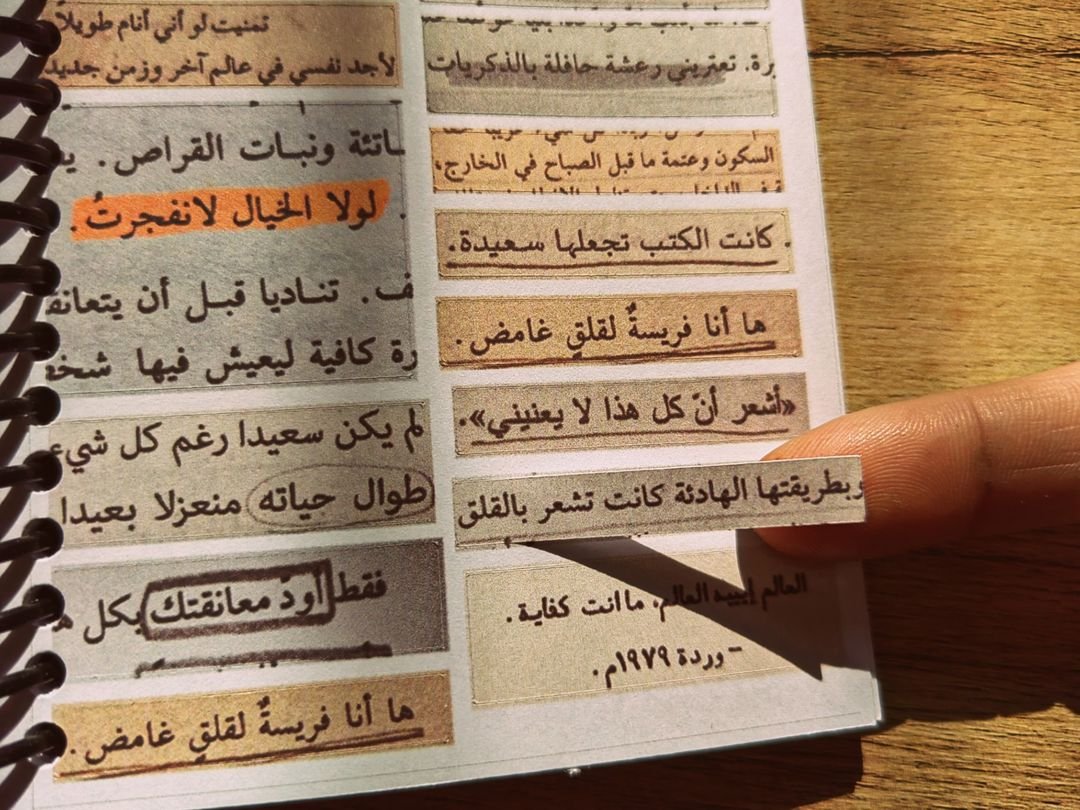 تعتريني رعشة حافلة بالذكريات
السكون وعتمة ما قبل الصباح في الخارج،
. كانت الكتب تجعلها سعيدة.
ها أنا فريسةٌ لقلقٍ غامض.
«أشعر أنّ كل هذا لا يعنيني».
وبطريقتها الهادئة كانت تشعر بالقلق
العالم إيييه العالم، ما انت كفاية.
– وردة ١٩٧٩م.
تمنيت لو أني أنام طويلاً
لأجد نفسي في عالم آخر وزمن جديد
ونبات القراص.
. لولا الخيال لانفجرتُ.
تناديا قبل أن يتعانقا
كافية ليعيش فيها
لم يكن سعيدا رغم كل شيء
طوال حياته منعزلا بعيدا
فقط أودّ معانقتك بكل
ها أنا فريسةٌ لقلقٍ غامض.